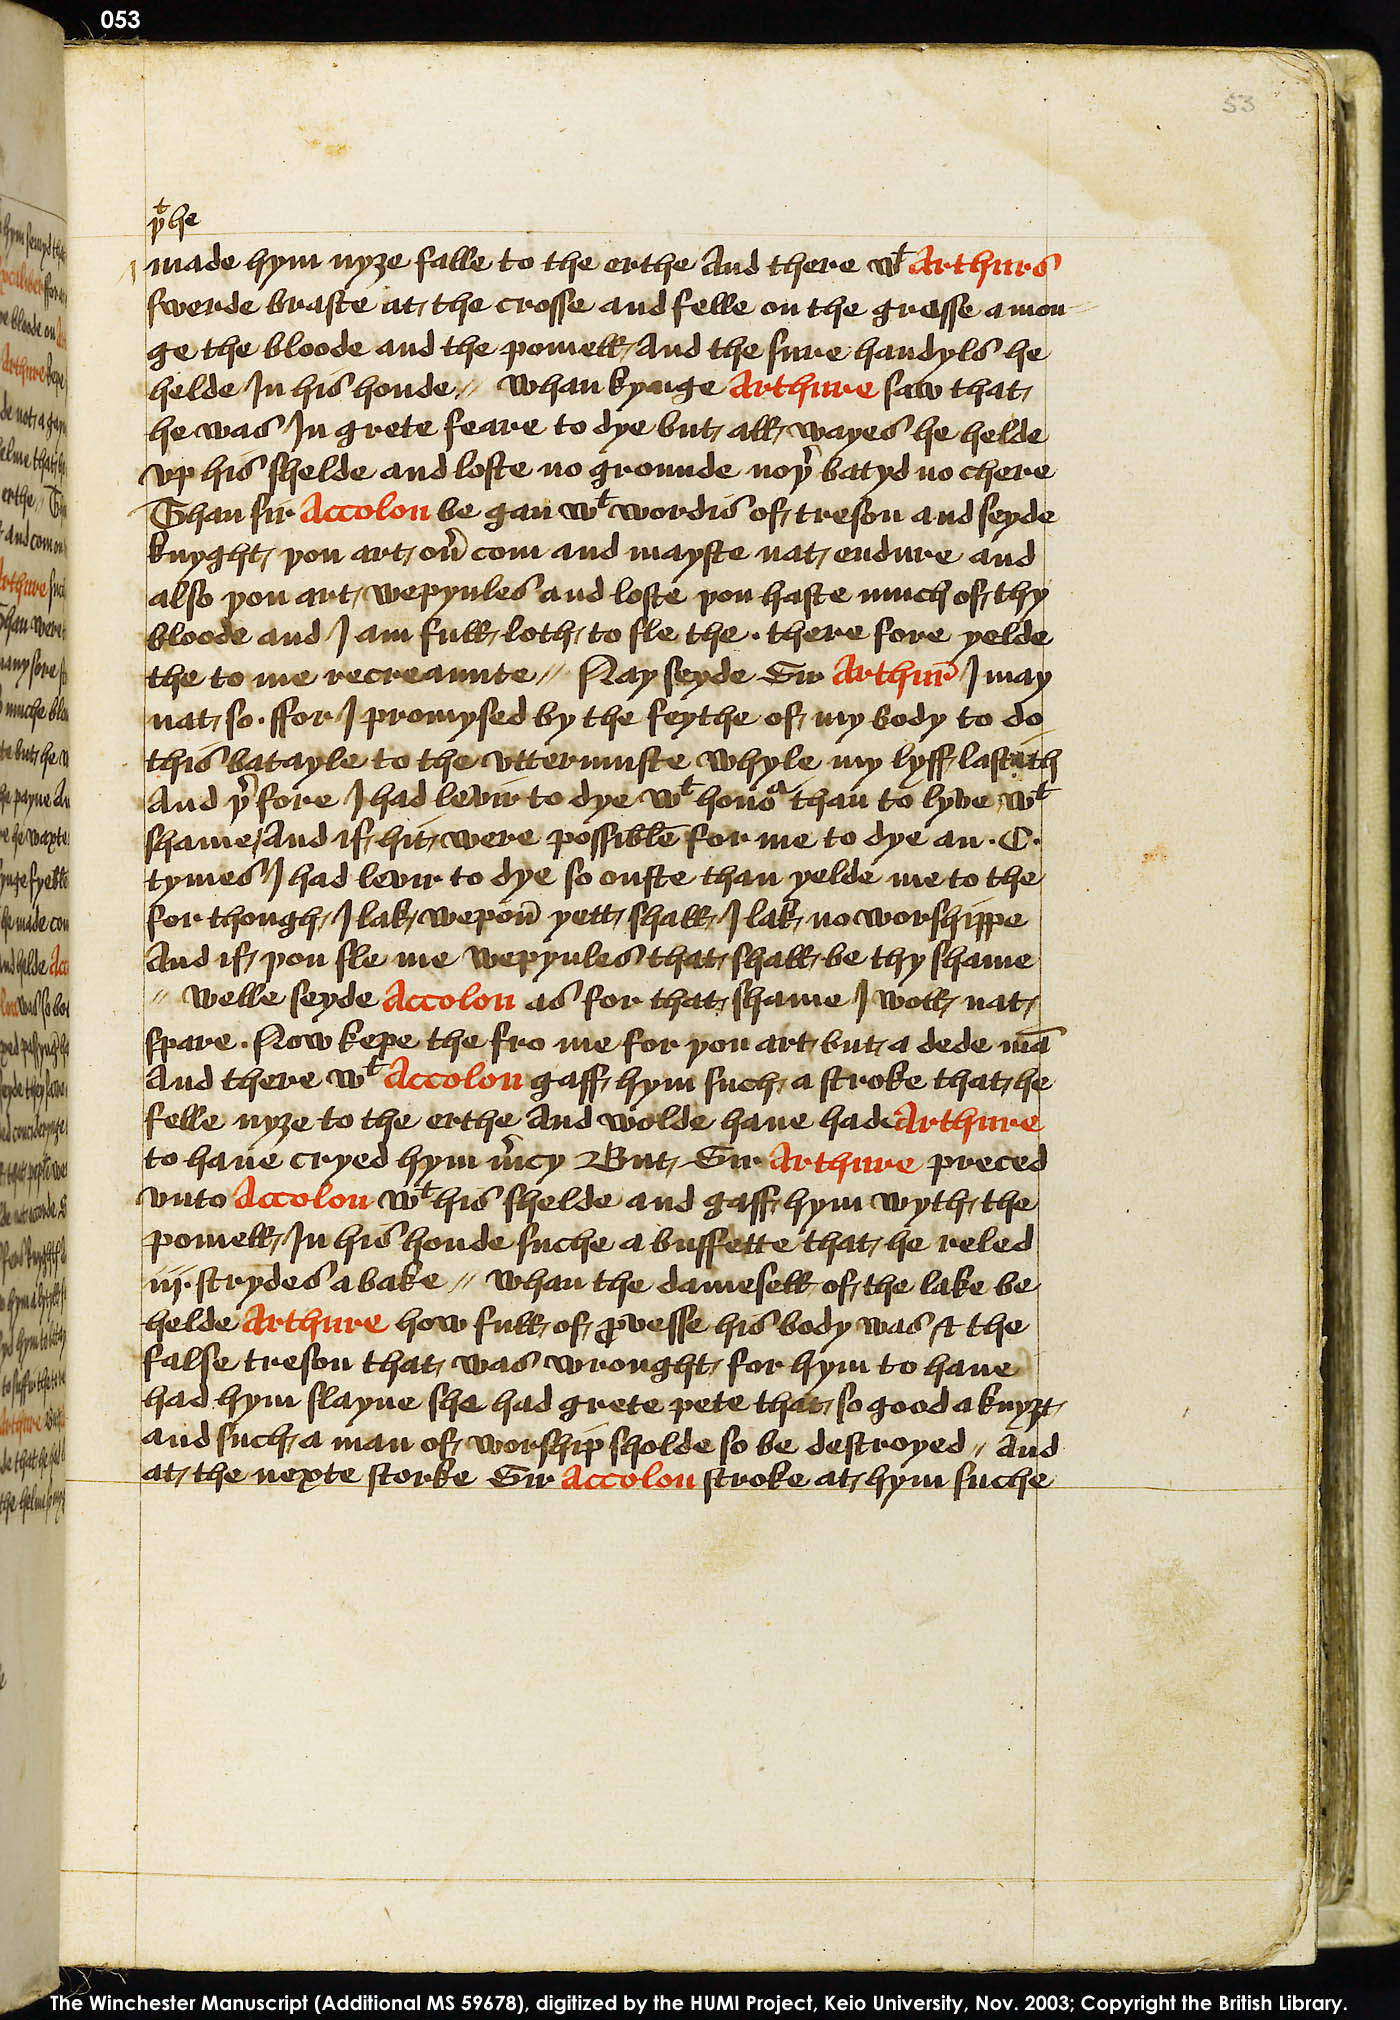 053
53
þᵗ he
made hym nyȝe falle to the erthe And there wᵗ Arthurs
swerde braste at the crosse and felle on the grasse a mon
ge the bloode and the pomell And the sure handyls he
helde In his honde // Whan kynge Arthure saw that
he was In grete feare to dye but all wayes he helde
vp his shelde and loste no grounde noþʳ batyd no chere
Than sir Accolon be gan wᵗ wordis of treson and seyde
knyght þou art ouʳ com and mayste nat endure and
also þou art wepynles and loste þou haste much of thy
bloode and I am full loth to sle the · there fore yelde
the to me recreaunte // Nay seyde Sir Arthur̄ I may
nat so · ffor I promysed by the feythe of my body to do
this batayle to the vttermuste whyle my lyff lastith
And þʳ fore I had levir to dye wᵗ honoʳ than to lyve wᵗ
shame / And if hit were possible for me to dye an · C ·
tymes I had levir to dye so oufte than yelde me to the
for though I lak wepon̄ yett shall I lak no worshippe
And if þou sle me wepynles that shall be thy shame
// Welle seyde Accolon as for that shame I woll nat
spare · Now kepe the fro me for þou art but a dede mā
And there wᵗ Accolon gaff hym such a stroke that he
felle nyȝe to the erthe And wolde haue hade Arthure
to haue cryed hym mʳcy But Sir Arthure preced
vnto Accolon wᵗ his shelde and gaff hym wyth the
pomell In his honde suche a buffette that he reled
iij strydes a bake // Whan the damesell of the lake be
helde Arthure how full of ꝓvesse his body was & the
false treson that was wrought for hym to haue
had hym slayne she had grete pete that so good a knyȝt
and such a man of worship sholde so be destroyed // And
at the nexte storke Sir Accolon stroke at hym suche
The Winchester Manuscript (Additional MS 59678), digitized by the HUMI Project, Keio University, Nov. 2003; Copyright the British Library.